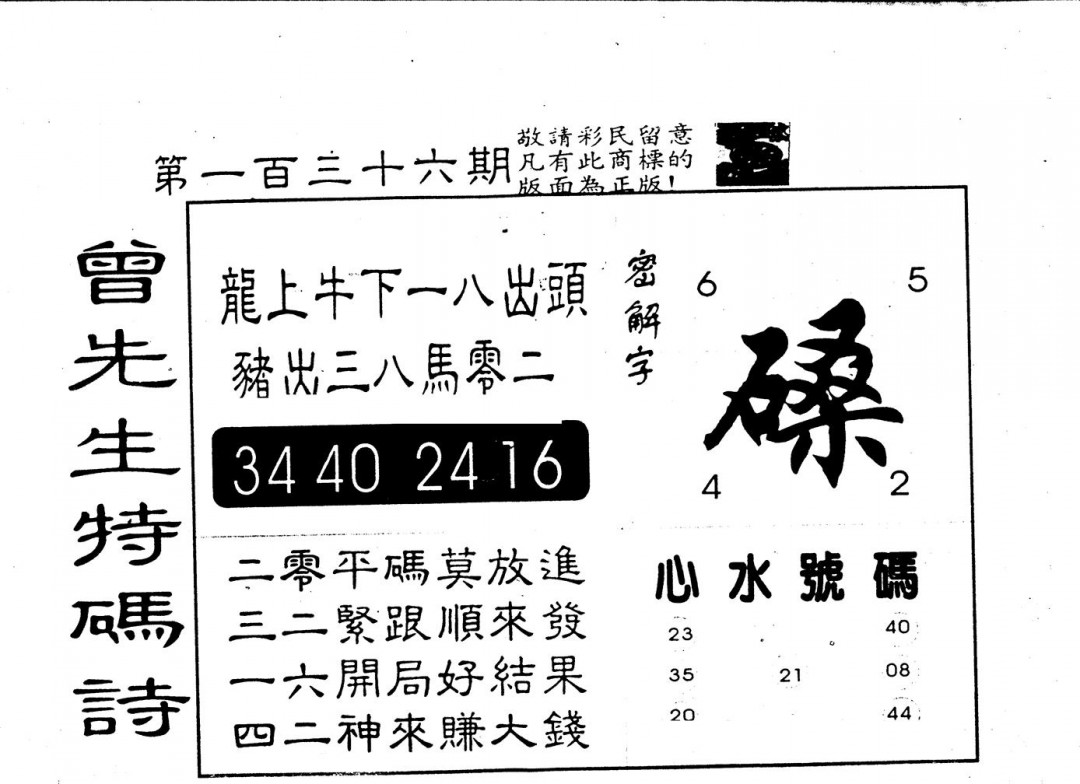 第一百三十六期
敬請彩民留意
凡有此商標的
版面為正版！
曾先生特碼詩
龍上牛下一八出頭
豬出三八馬零二
34 40 24 16
二零平碼莫放進
三二緊跟順來發
一六開局好結果
四二神來賺大錢
密解字
6 5
磉
4 2
心水號碼
23 40
35 21 08
20 44